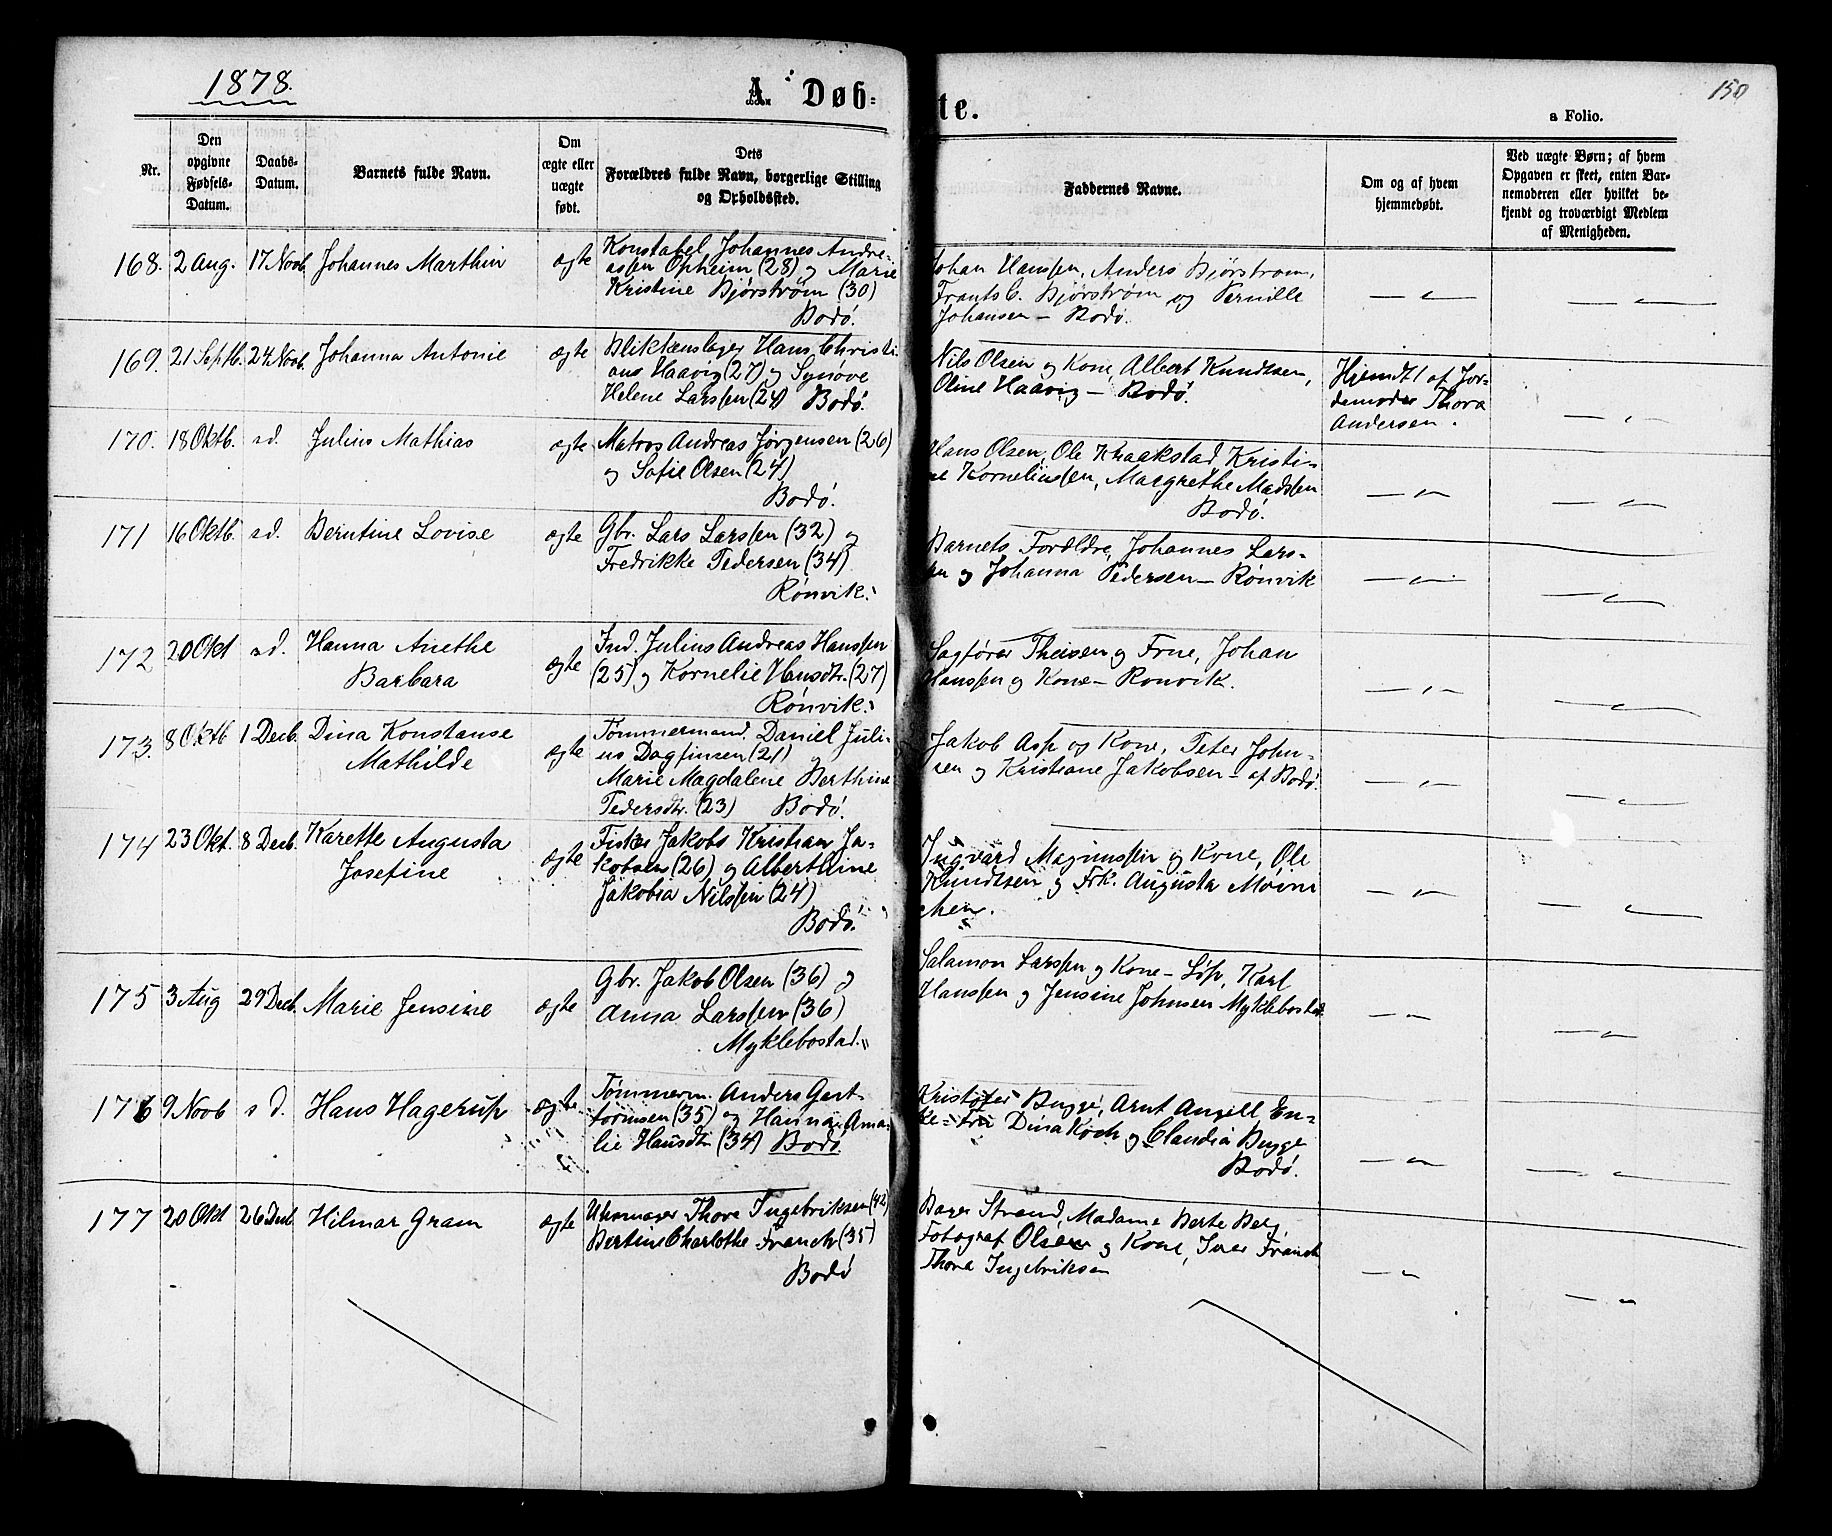 1878.
A. Døb-
te.
150
a Folio.
Nr.
Den
opgivne
Fødsels-
Datum.
Daabs-
Datum.
Barnets fulde Navn.
Om
ægte eller
uægte
født.
Dets
Forældres fulde Navn, borgerlige Stilling
og Opholdssted.
Faddernes Navne.
Om og af hvem
hjemmedøbt.
Ved uægte Børn; af hvem
Opgaven er skeet, enten Bar-
nemoderen eller hvilket be-
kjendt og troværdigt Medlem
af Menigheden.
168. 2 Aug. 17 Novb. Johannes Marthin ægte
Konstabel Johannes Andre-
assen Opheim (28) og Marie
Kristine Bjørstrøm (30)
Bodø.
Johan Hanssen, Anders Bjørstrøm,
Frants C. Bjørstrøm og Pernille
Johansen - Bodø.
169. 21 Septb. 24 Novb. Johanna Antonie ægte
Blikkenslager Hans Christi-
ans Haavig (27) og Synøve
Helene Larssen (24) Bodø.
Nils Olsen og Kone, Albert Knudtsen,
Oline Haavig - Bodø.
Hjemdt af Jor-
demoder Thora
Andersen.
170. 18 Oktb. s.d. Julius Mathias ægte
Matros Andreas Jørgensen (26)
og Sofie Olsen (24)
Bodø.
Hans Olsen, Ole Kraakstad, Kristi-
ne Korneliussen, Margrethe Madssen
Bodø.
171 16 Oktb. s.d. Berntine Lovise ægte
Gbr. Lars Larssen (32) og
Fredrikke Pedersen (34)
Rønvik.
Barnets Forældre, Johannes Lars-
sen og Johanna Pedersen - Rønvik
172 20 Okt s.d. Hanna Anethe
Barbara
ægte
Ind. Julius Andreas Hanssen
(25) og Kornelie Hansdtr. (27)
Rønvik.
Sagfører Theisen og Frue, Johan
Hanssen og Kone - Rønvik.
173. 8 Oktb 1 Decb. Dina Konstanse
Mathilde
ægte
Tømmermand. Daniel Juli-
us Dagfinsen (21)
Marie Magdalene Berthine
Pedersdtr. (23) Bodø.
Jakob Asp og Kone, Peter John-
sen og Kristiane Jakobsen - af Bodø.
174 23 Okt. 8 Decb. Karette Augusta
Josefine
ægte
Fisker Jakobs Kristian Ja-
kobsen (26) og Alberthine
Jakobia Nilssen (24)
Bodø.
Ingvard Magnussen og Kone, Ole
Knudtsen og Frk. Augusta Møin
chen.
175 3 Aug 29 Decb. Marie Jensine ægte
Gbr. Jakob Olsen (36) og
Anna Larssen (36)
Myklebostad.
Salamon Larssen og Kone - Løp, Karl
Hanssen og Jensine Johnsen Myklebostad.
176 9 Novb s.d. Hans Hagerup ægte
Tømmerm. Anders Gert-
tormsen (35) og Hanna Ama-
lie Hansdtr. (34) Bodø.
Kristofer Bugge, Arnt Angell En-
ke-Fru Dina Koch og Claudia Bugge
Bodø.
177 20 Okt 26 Decb Hilmar Gram ægte
Uhrmager Thore Ingebriksen (42)
Bertine Charlothe Franck (35)
Bodø
Bager Strand, Madame Berte Berg,
Fotograf Olsen og Kone, Iver Franck
Thore Ingebriksen